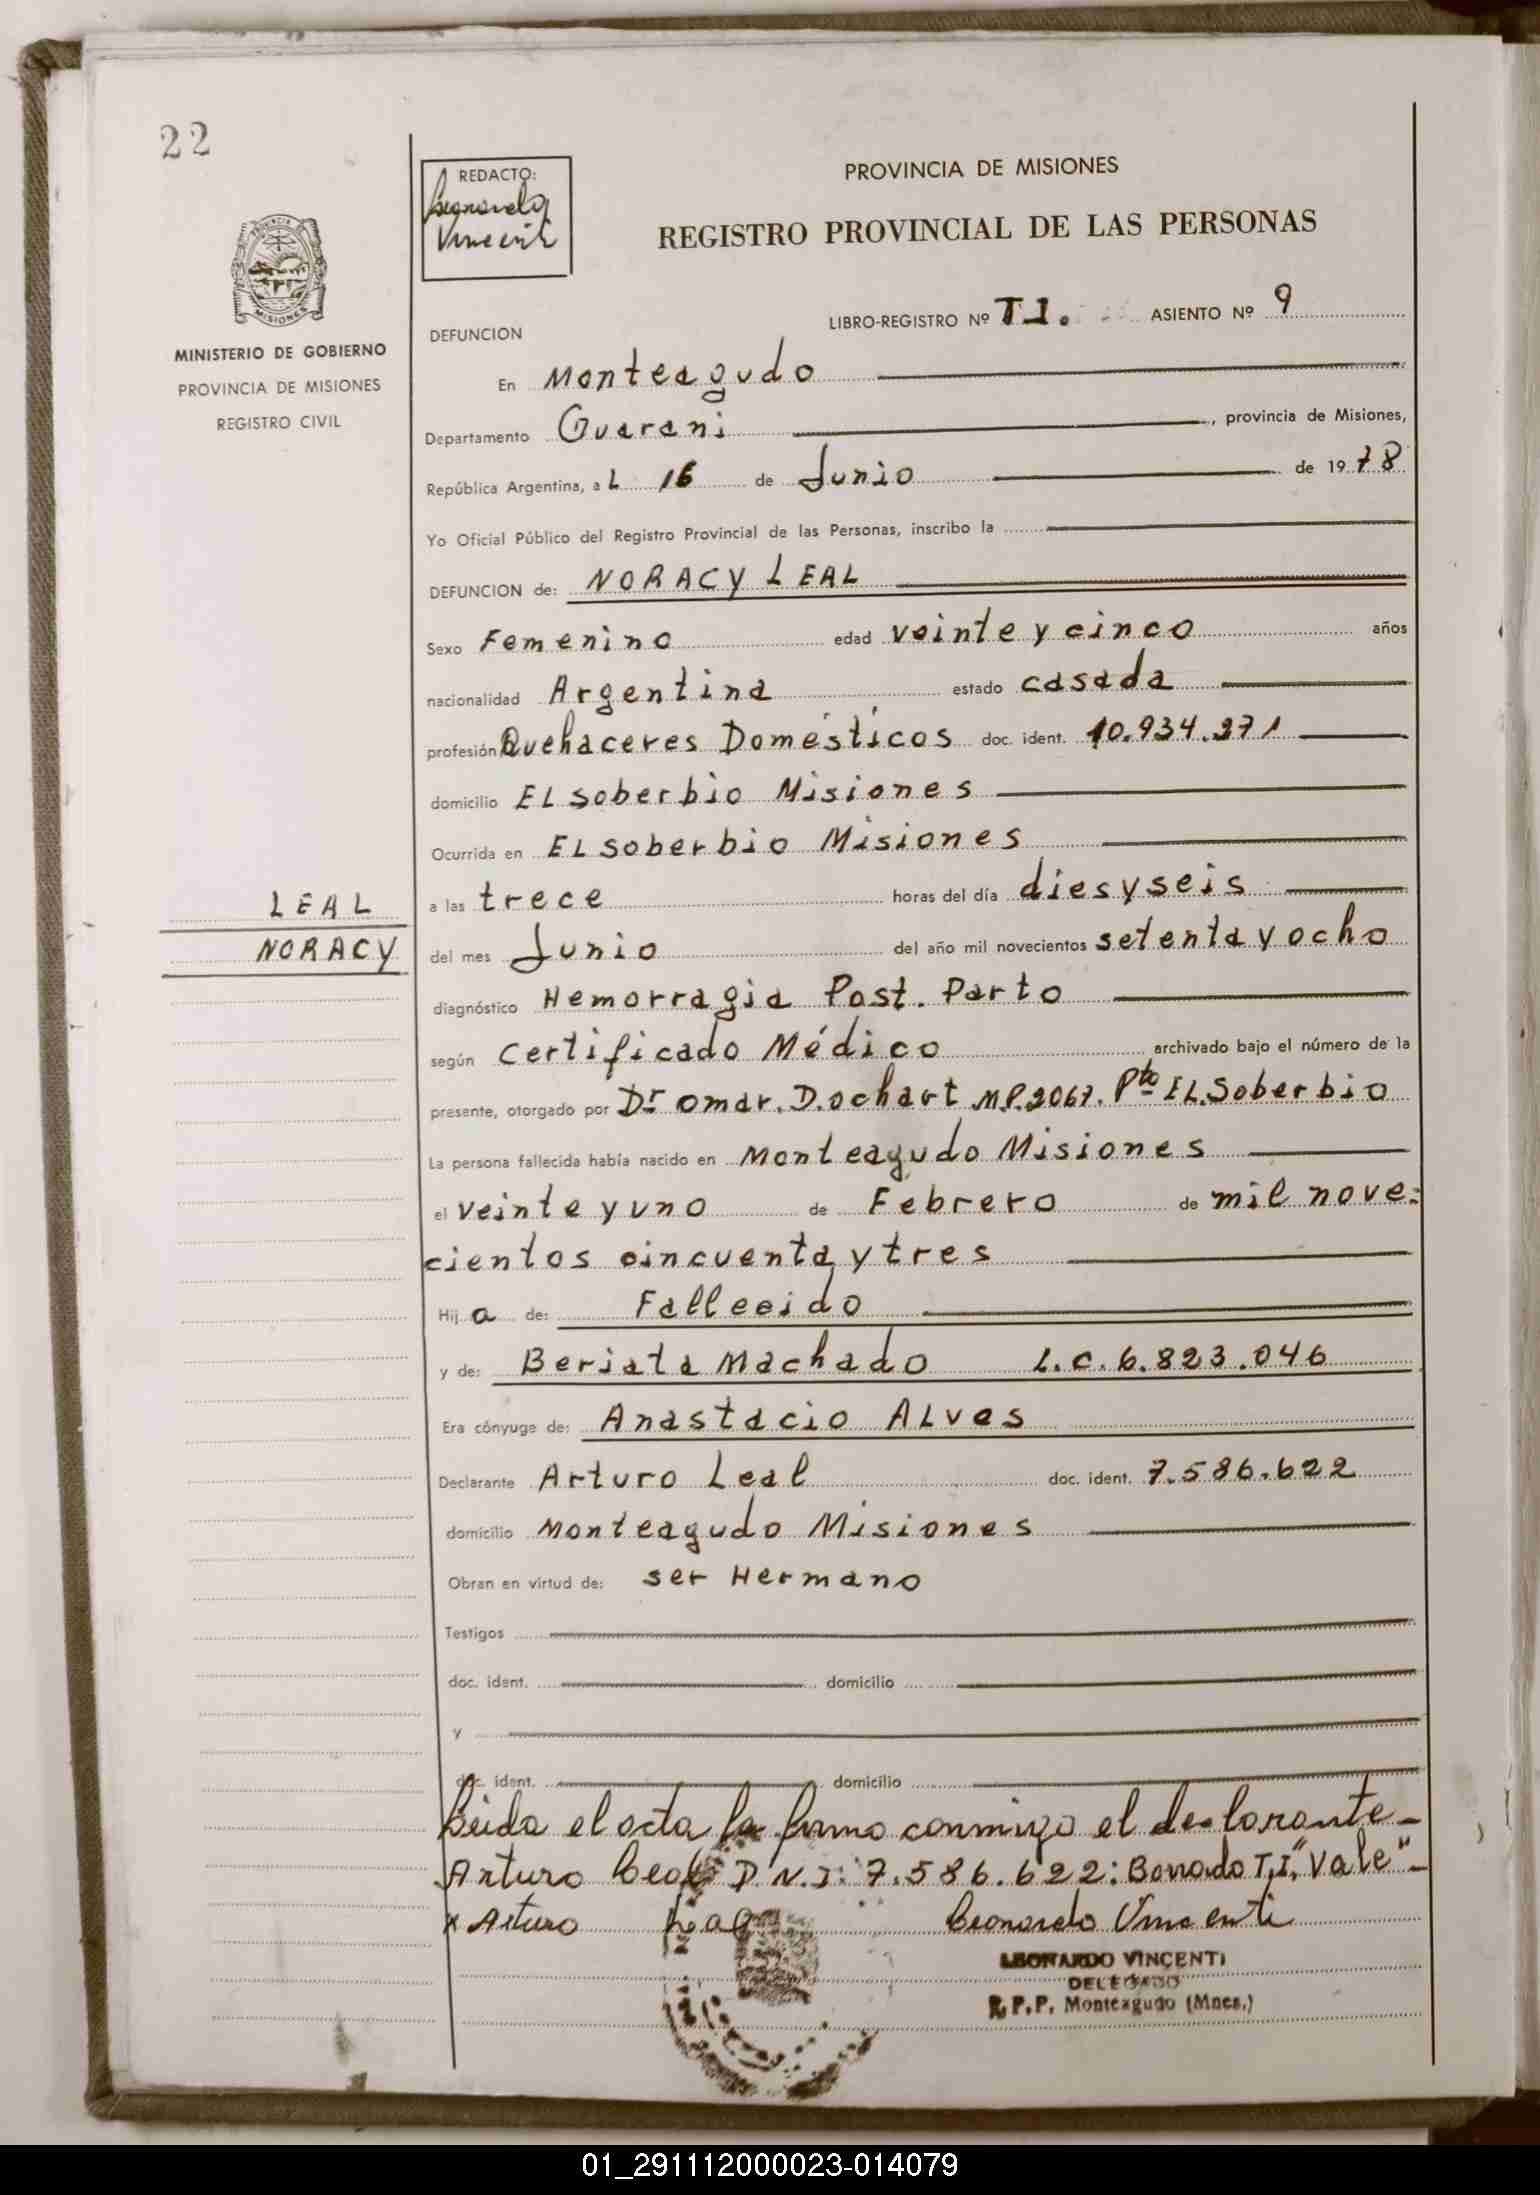 22
REDACTO:
Leonardo
Vincenti
PROVINCIA DE MISIONES
REGISTRO PROVINCIAL DE LAS PERSONAS
MISIONES
MINISTERIO DE GOBIERNO
PROVINCIA DE MISIONES
REGISTRO CIVIL
LIBRO-REGISTRO Nº T1. ASIENTO Nº 9
DEFUNCION
En Monteagudo
Departamento Guarani, provincia de Misiones,
República Argentina, a L 16 de Junio de 1978
Yo Oficial Público del Registro Provincial de las Personas, inscribo la
DEFUNCION de: NORACY LEAL
Sexo Femenino edad veinte y cinco años
nacionalidad Argentina estado casada
profesión Quehaceres Domésticos doc. ident. 10.934.271
domicilio EL soberbio Misiones
Ocurrida en EL soberbio Misiones
LEAL
NORACY
a las trece horas del día dies y seis
del mes Junio del año mil novecientos setenta y ocho
diagnóstico Hemorragia Post. Parto
según Certificado Médico archivado bajo el número de la
presente, otorgado por Dr Omar. D. Ochart M.P. 2067. Pto EL. Soberbio
La persona fallecida había nacido en Monteagudo Misiones
el veinte y uno de Febrero de mil nove=
cientos cincuenta y tres
Hij a de: Fallecido
y de: Beriata Machado L.C. 6.823.046
Era cónyuge de: Anastacio ALves
Declarante Arturo Leal doc. ident. 7.586.622
domicilio Monteagudo Misiones
Obran en virtud de: ser Hermano
Testigos
doc. ident. domicilio
y
doc. ident. domicilio
Leida el acta la firma conmigo el declarante-
Arturo Leal D.N.I: 7.586.622: Borrado T.I. "Vale"-
x Arturo Leal Leonardo Vincenti
LEONARDO VINCENTI
DELEGADO
R.P.P. Monteagudo (Mnes.)
01_291112000023-014079